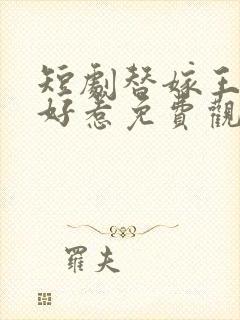 短劇替嫁王
好惹免費觀
羅夫